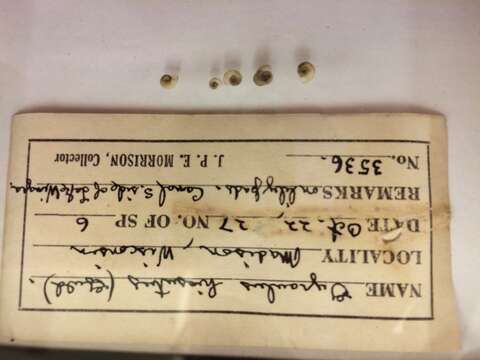 NAME Gyraulus hirsutus (Gould).
LOCALITY Madison, Wisconsin
DATE Oct. 22, 27 NO. OF SP 6
REMARKS on lily pads. Canal S. side of Lake Wingra
No. 3536. J. P. E. MORRISON, Collector